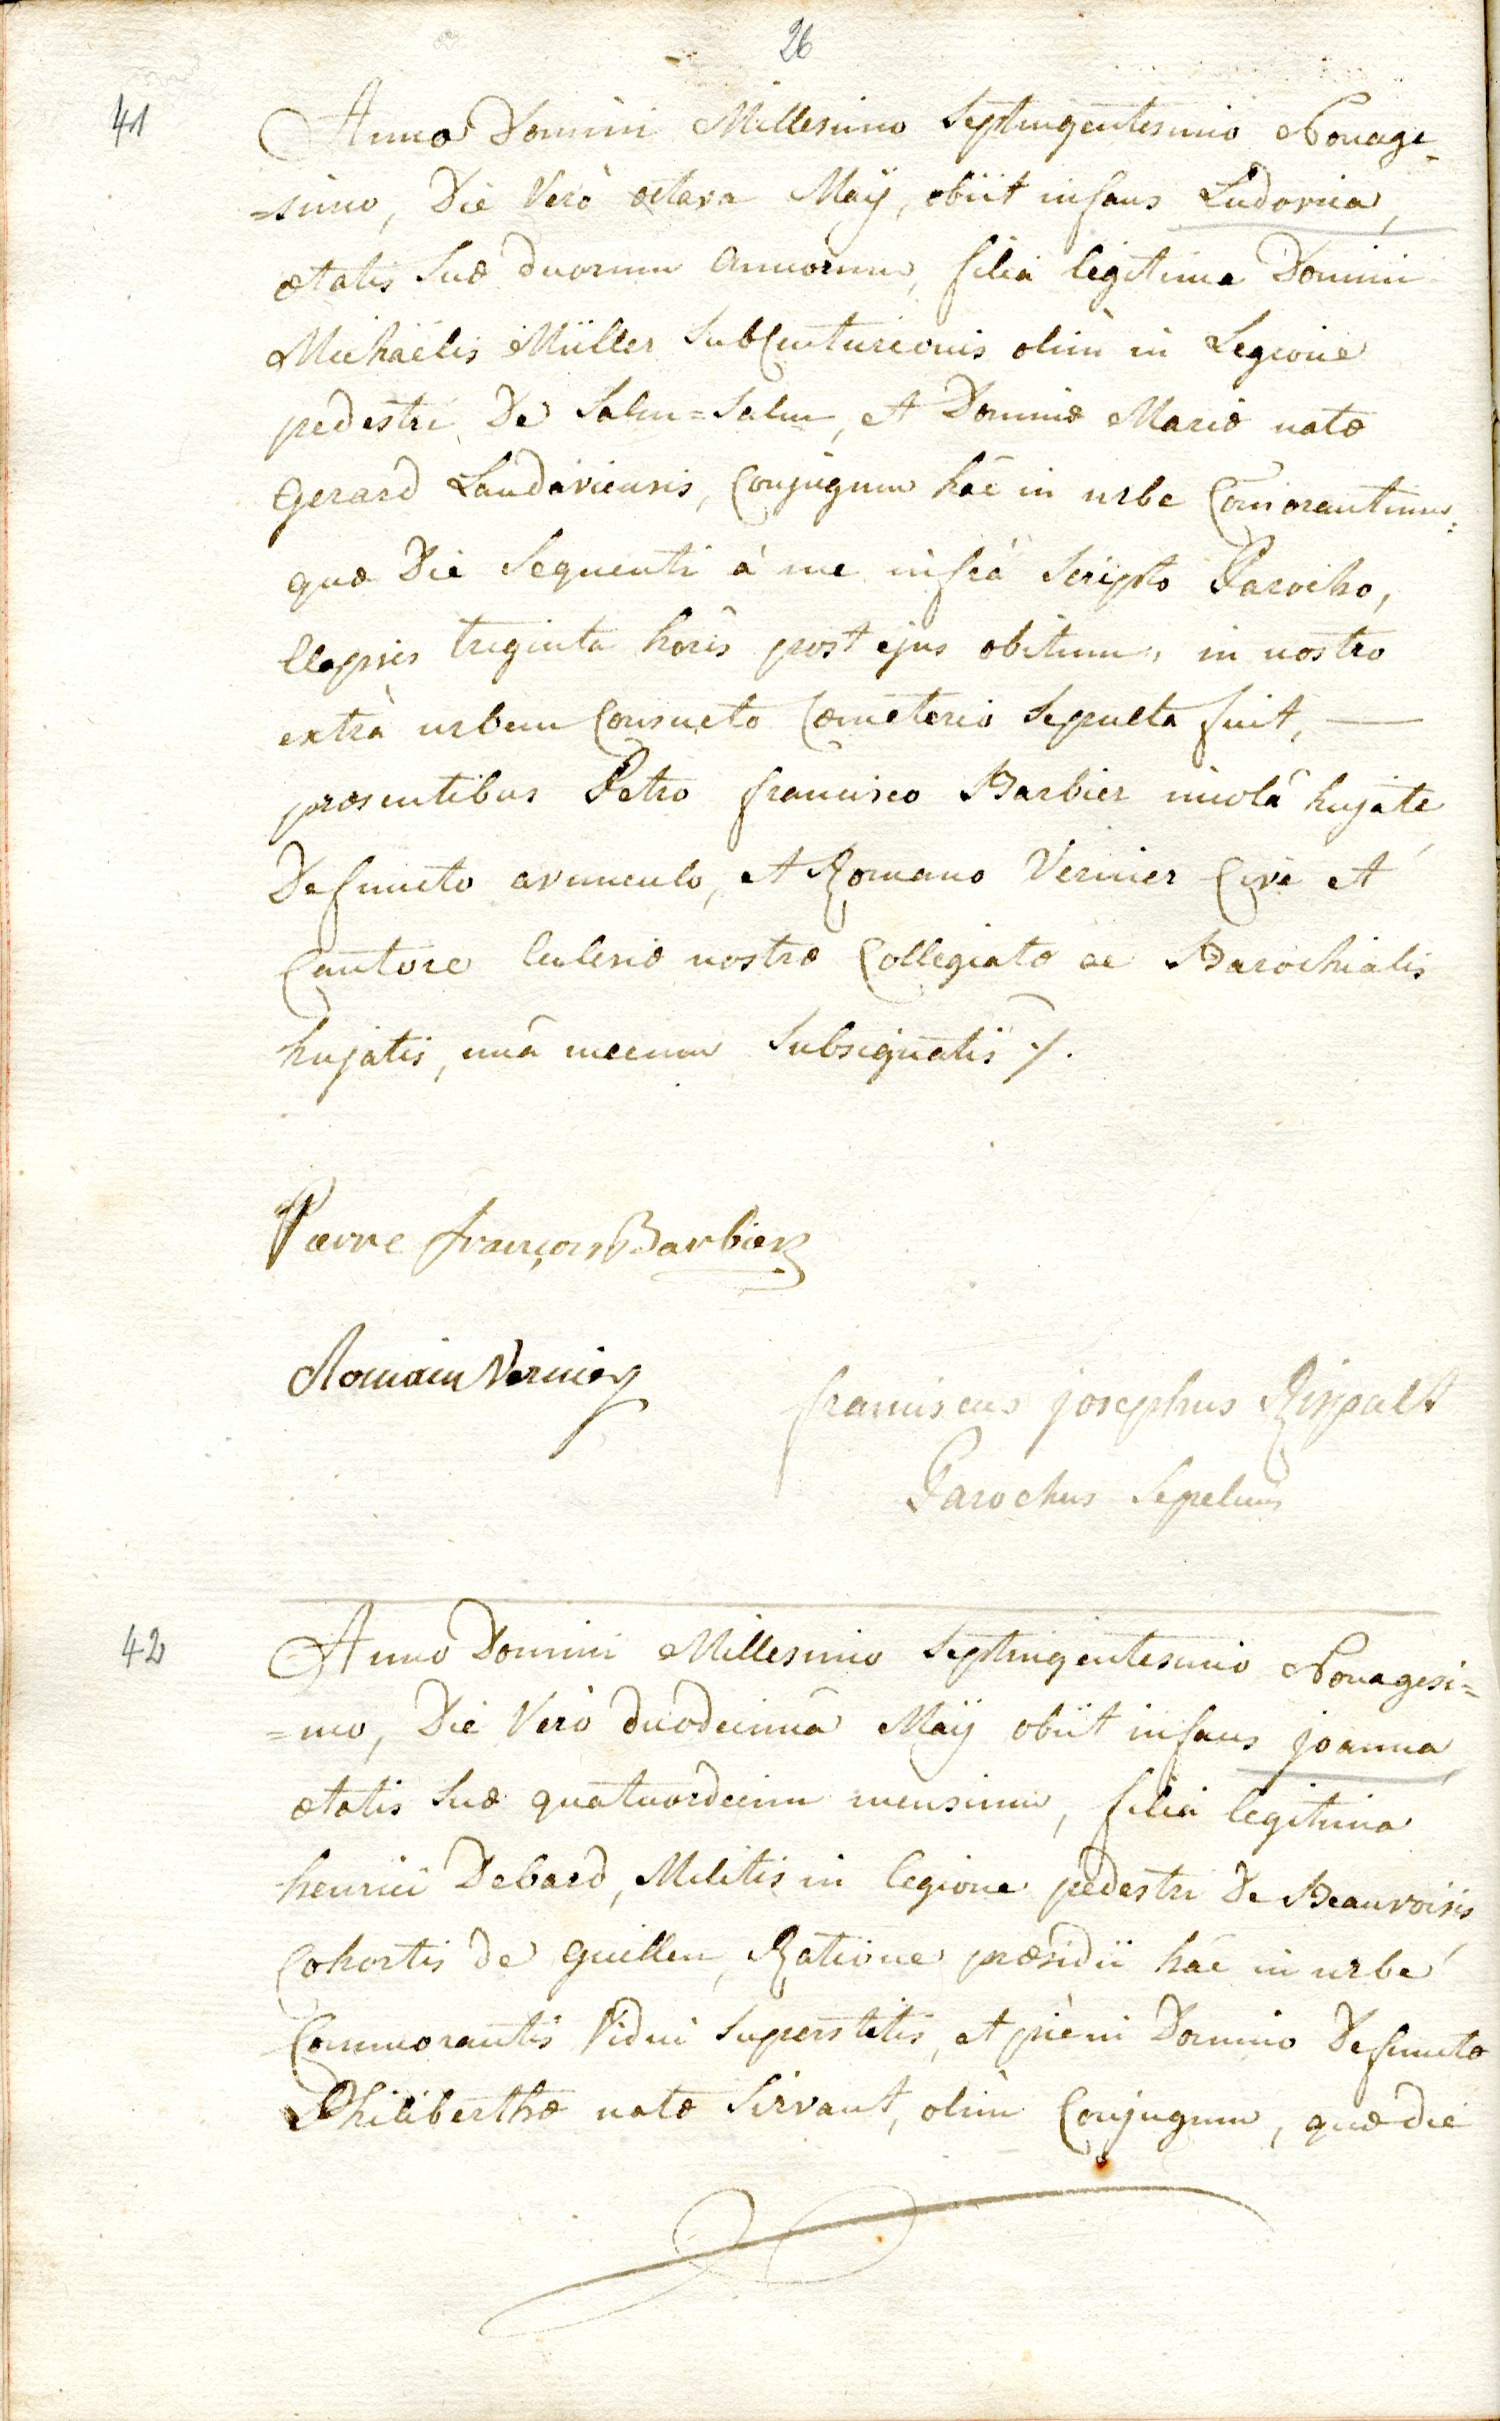 26
41
Anno Domini Millesimo Septingentesimo Nonage-
=simo, Die Verò octava Maÿ, obiit infans Ludovica,
ætatis Suæ duorum annorum, filia legitima Domini
Michaëlis Müller SubCenturionis olim in Legione
pedestri De Salm=Salm, et Dominæ Mariæ natæ
Gerard Landaviensis, Conjugum hâc in urbe Comorantium:
quæ Die Sequenti à me infrà Scripto Parocho,
Elapsis triginta horis post ejus obitum, in nostro
extrà urbem Consueto Cœmeterio Sepulta fuit, —
præsentibus Petro francisco Barbier incolâ hujate
Defunctæ avunculo, et Romano Vernier Cive et
Cantore Ecclesiæ nostræ Collegiatæ ac Parochialis
hujatis, unâ mecum Subsignatis ⁒.
Pierre françois Barbier
Romain Vernier
franciscus josephus Rispalt
Parochus Sepeliens
42
Anno Domini Millesimo Septingentesimo Nonagesi=
=mo, Die Verò duodecimâ Maÿ obiit infans joanna
ætatis Suæ quatuordecim mensium, filia legitima
henrici Debard, Militis in legione pedestri De Beauvoisis,
Cohortis de Guillen, Ratione præsidii hâc in urbe
Commorantis Vidui Superstitis, et piè in Domino Defunctæ
Philiberthæ natæ Sirvant, olim Conjugum, quæ die